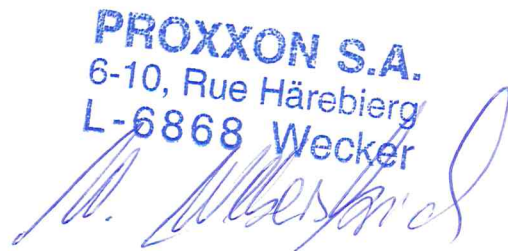 PROXXON S.A.
6-10, Rue Härebierg
L-6868 Wecker